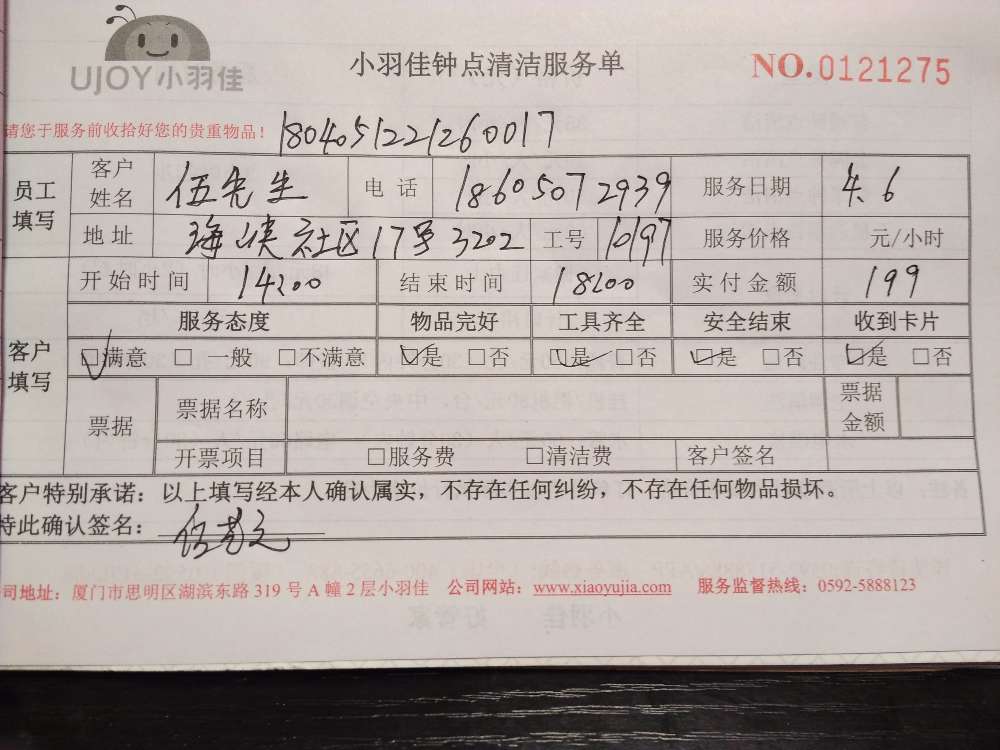 UJOY小羽佳
小羽佳钟点清洁服务单
NO.0121275
请您于服务前收拾好您的贵重物品！ 180405122126 0017
员工填写 客户姓名 伍先生 电话 18605072939 服务日期 4.6
地址 海峡社区17号3202 工号 10197 服务价格 元/小时
开始时间 14:00 结束时间 18:00 实付金额 199
客户填写 服务态度 物品完好 工具齐全 安全结束 收到卡片
☑满意 □一般 □不满意 ☑是 □否 ☑是 □否 ☑是 □否 ☑是 □否
票据 票据名称 票据金额
开票项目 □服务费 □清洁费 客户签名
客户特别承诺：以上填写经本人确认属实，不存在任何纠纷，不存在任何物品损坏。
特此确认签名：
公司地址：厦门市思明区湖滨东路319号A幢2层小羽佳 公司网站：www.xiaoyujia.com 服务监督热线：0592-5888123